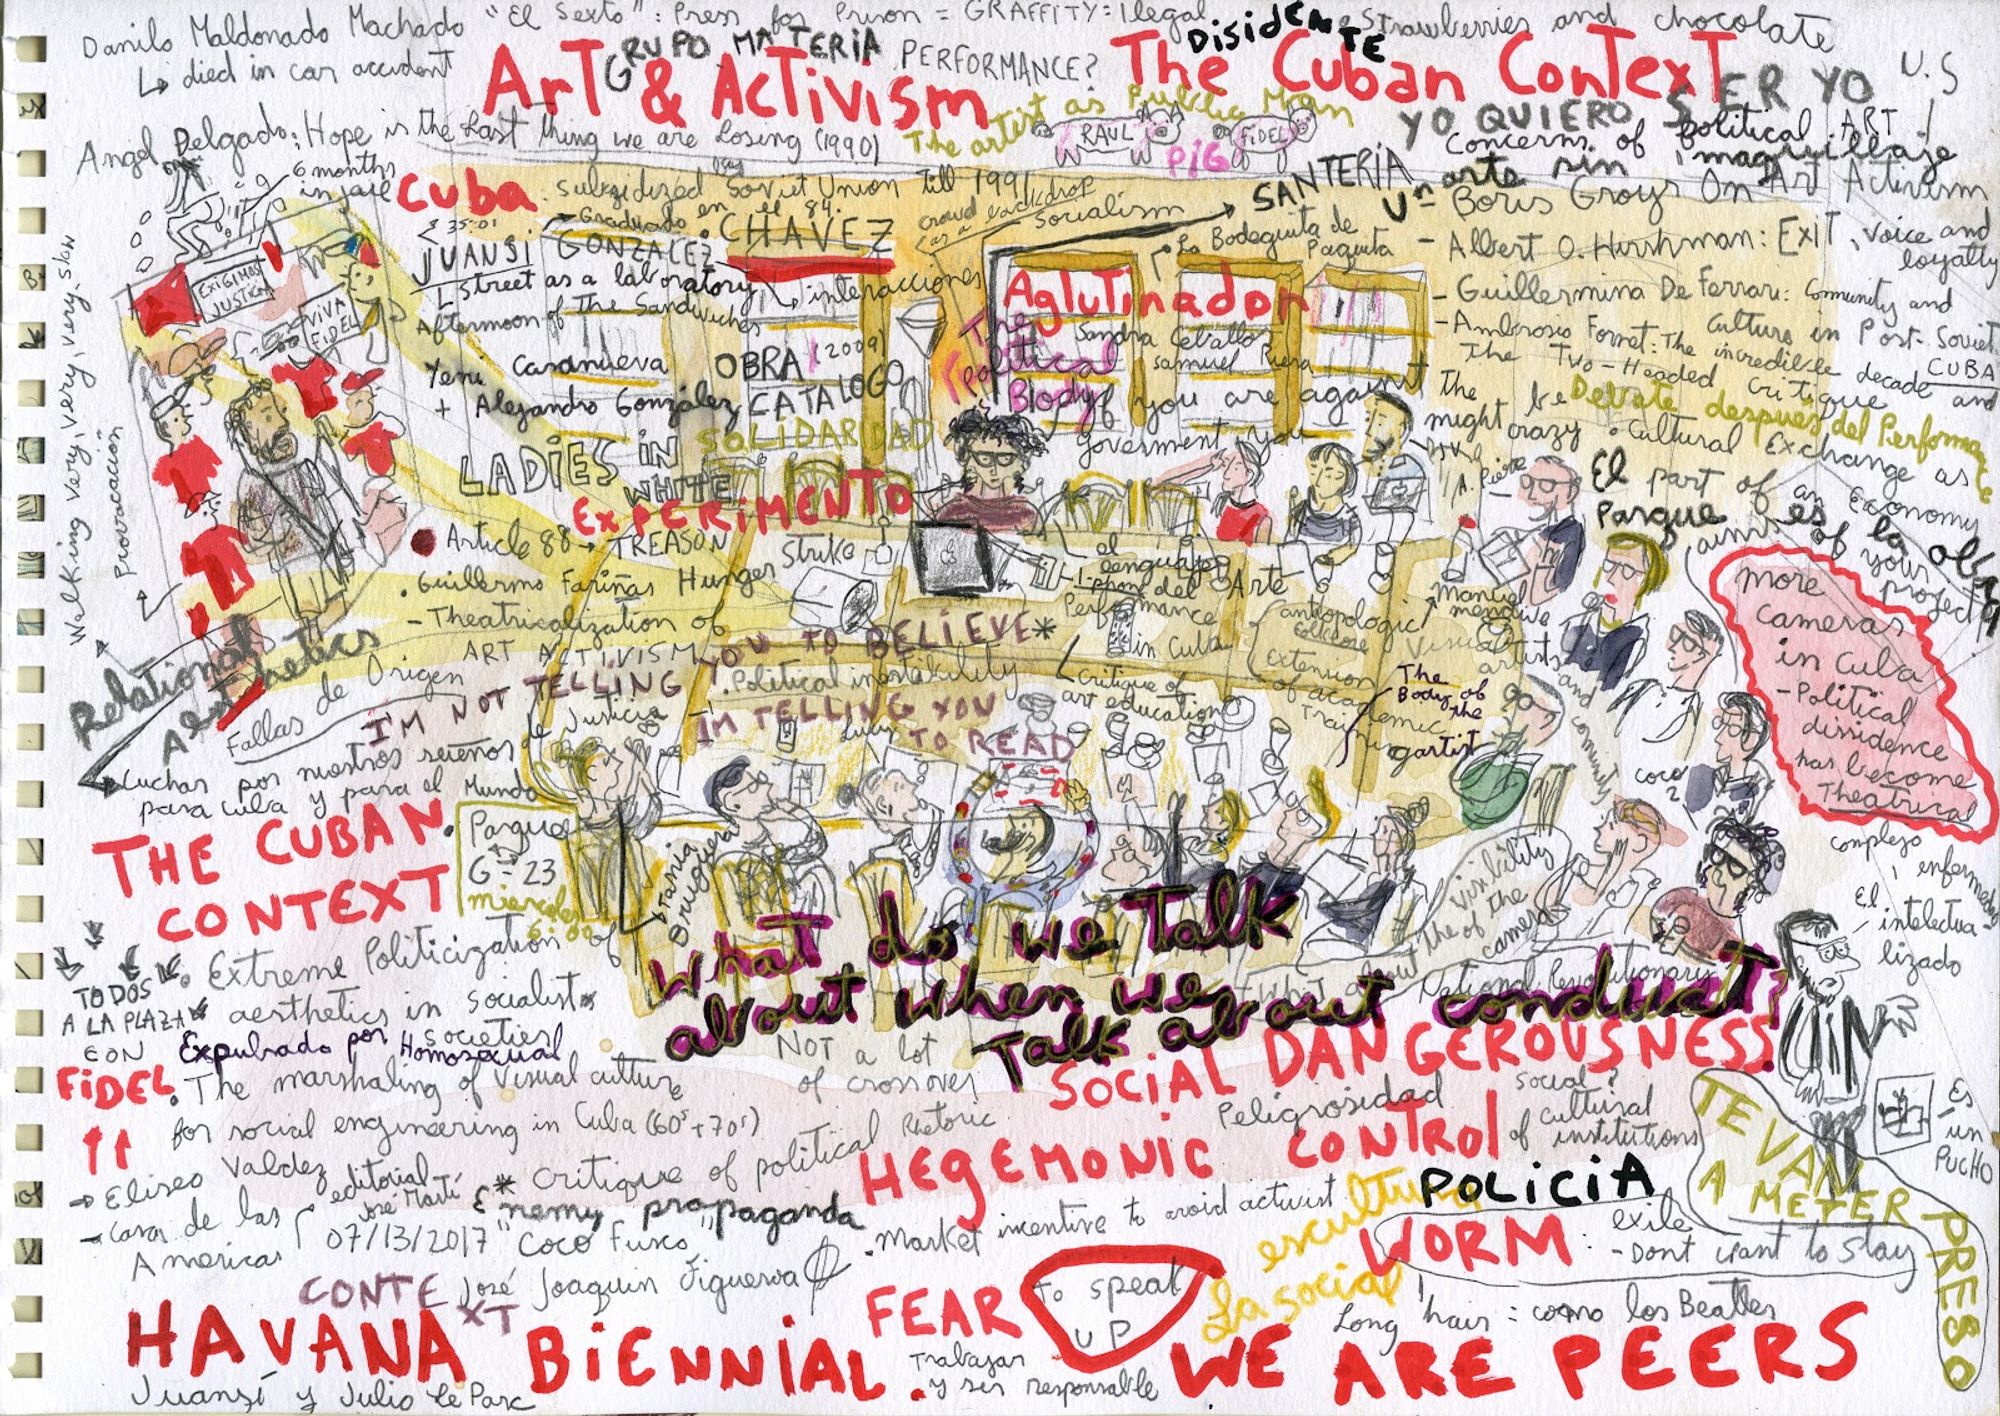 Danilo Maldonado Machado "El Sexto": Press for Prison = GRAFFITY: Ilegal
DISIDENTE
Strawberries and chocolate
↳ died in car accident
GRUPO MATERIA
PERFORMANCE?
Art & Activism
The Cuban Context
U.S
YO QUIERO SER YO
The artist as Public Man
Angel Delgado: Hope is the Last thing we are Losing (1990)
6 months in jail
RAUL
FIDEL
PIG
ART!
Concerns of political
Un arte sin maquillaje
Cuba
subsidized Soviet Union till 1991
Graduado en el 84.
crowd as a backdrop
Socialism
SANTERIA
- Boris Groys On Art Activism
- Albert O. Hirshman: EXIT, voice and loyalty
- Guillermina De Ferrari: Community and Culture in Post-Soviet CUBA
- Ambrosio Fornet: The incredible decade and
The Two-Headed Critique
35:01
JUANSI GONZALEZ
CHAVEZ
L street as a laboratory
interacciones
Afternoon of the Sandwiches
La Bodeguita de Paquita
Aglutinador
Sandra Ceballos
Samuel Riera
The Political Body
If you are against
goverment you
might be crazy
Debate despues del Performance
Cultural Exchange as an Economy
Yeni Casanueva
+ Alejandro González
OBRA (2009)
CATALOGO
SOLIDARIDAD
LADIES IN WHITE
EXPERIMENTO
EXIGIMOS JUSTICIA
VIVA FIDEL
Walking very, very, very, slow
Provocación
El Parque es la obra
part of
aim of your project
Article 88 → TREASON
Guillermo Fariñas Hunger Strike
- Theatricalization of ART ACTIVISM
el lenguaje del Performance
I-phone
Arte
in Cuba
critique of art education
antropologic
folklore
Extension of academic training
manuel mendive
Visual artists and community
The Body of the artist
more cameras in Cuba
- Political dissidence has become Theatrical
Relational Aesthetics
Fallas de Origen
I'M NOT TELLING YOU TO BELIEVE*
IM TELLING YOU TO READ
Political instability
de Justicia
Luchar por nuestros sueños
para Cuba y para el Mundo
coco?
THE CUBAN CONTEXT
Parque G - 23
miercoles 6:00
Tania Bruguera
What do we Talk about when we Talk about conduct?
visibility of the camera
National Revolutionary
complejo
enfermedad
El intelectualizado
TODOS A LA PLAZA CON FIDEL
Extreme Politicization of aesthetics in socialist societies
Expulsado por Homosexual
The marshaling of visual culture
for social engineering in Cuba (60s + 70s)
NOT a lot of crossover
SOCIAL DANGEROUSNESS
Peligrosidad social?
HEGEMONIC CONTROL
of cultural institutions
TE VAN A METER PRESO
Es un PUCHO
→ Eliseo Valdez
editorial José Martí
→ Casa de las Americas
07/13/2017
* Critique of political rhetoric
"Enemy propaganda"
Coco Fusco
José Joaquin Figueroa
- Market incentive to avoid activist
escultura
La social
POLICIA
WORM: exile
- Dont want to stay
Long hair: como los Beatles
CONTEXT
HAVANA BIENNIAL.
FEAR
to speak up
Trabajar y ser responsable
WE ARE PEERS
Juansí y Julio Le Parc